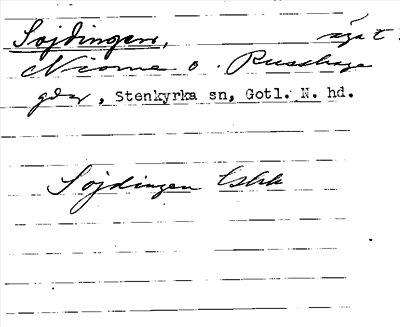 Sojdingen, ägat.
Nicome o. Russhage
gdar, Stenkyrka sn, Gotl. N. hd.
Söjdingen Eskk